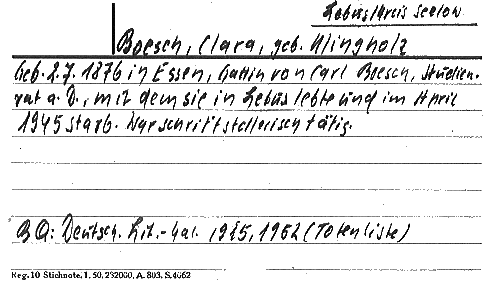 Lebus/Kreis Seelow
Boesch, Clara, geb. Klingholz
Geb. 2.7. 1876 in Essen, Gattin von Carl Boesch, Studien-
rat a. D., mit dem sie in Lebus lebte und im April
1945 starb. War schriftstellerisch tätig.
BQ: Deutsch. Lit.-Kal. 1925, 1962 (Totenliste)
Reg. 10 Stichnote, 1, 50, 232000, A. 803, S. 4062